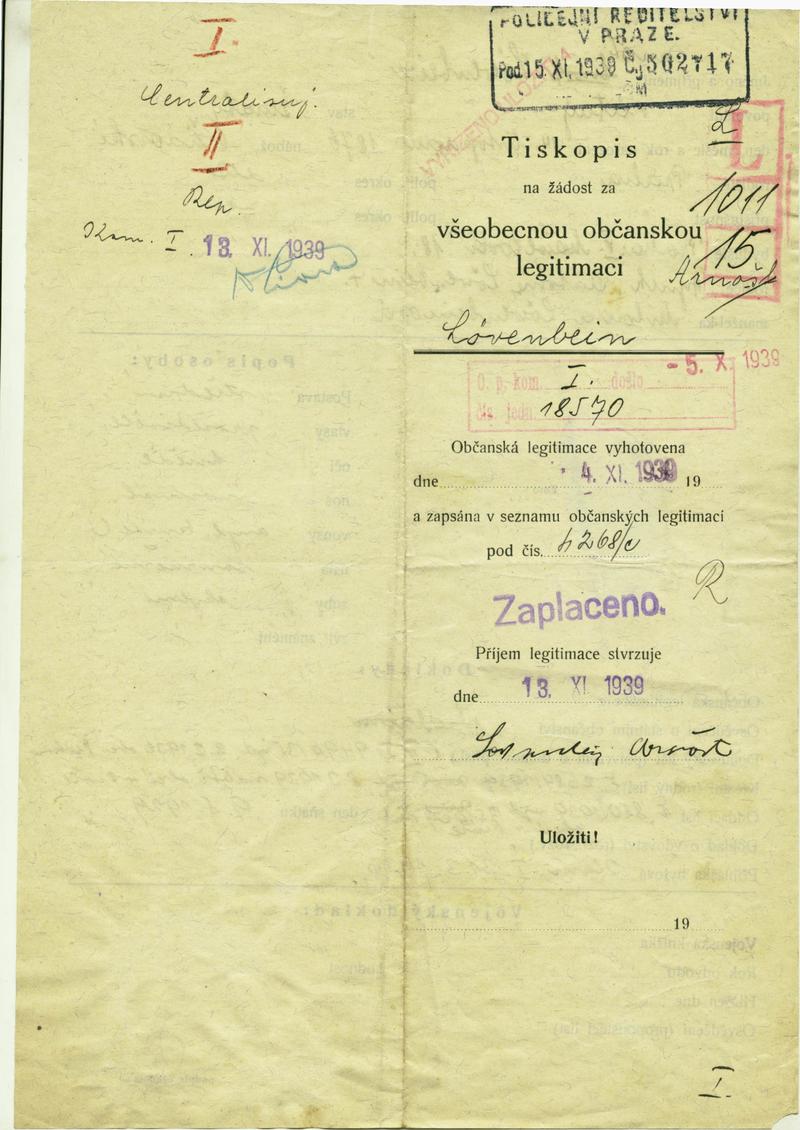 I.
Centralisuj.
II
Rep.
Kom. I. 13. XI. 1939
POLICEJNÍ ŘEDITELSTVÍ
V PRAZE.
Pod. 15. XI. 1939 Čj. 502717
L
L
Tiskopis
na žádost za
1011
všeobecnou občanskou
15
legitimaci
Arnošt
Lövenbein
- 5. X. 1939
O. p. kom. I. došlo
čís. jedn. 18570
Občanská legitimace vyhotovena
dne 4. XI. 1939 19
a zapsána v seznamu občanských legitimací
pod čís. 4268/c
R
Zaplaceno.
Příjem legitimace stvrzuje
dne 13. XI 1939
Arnošt
Uložiti!
19
I.